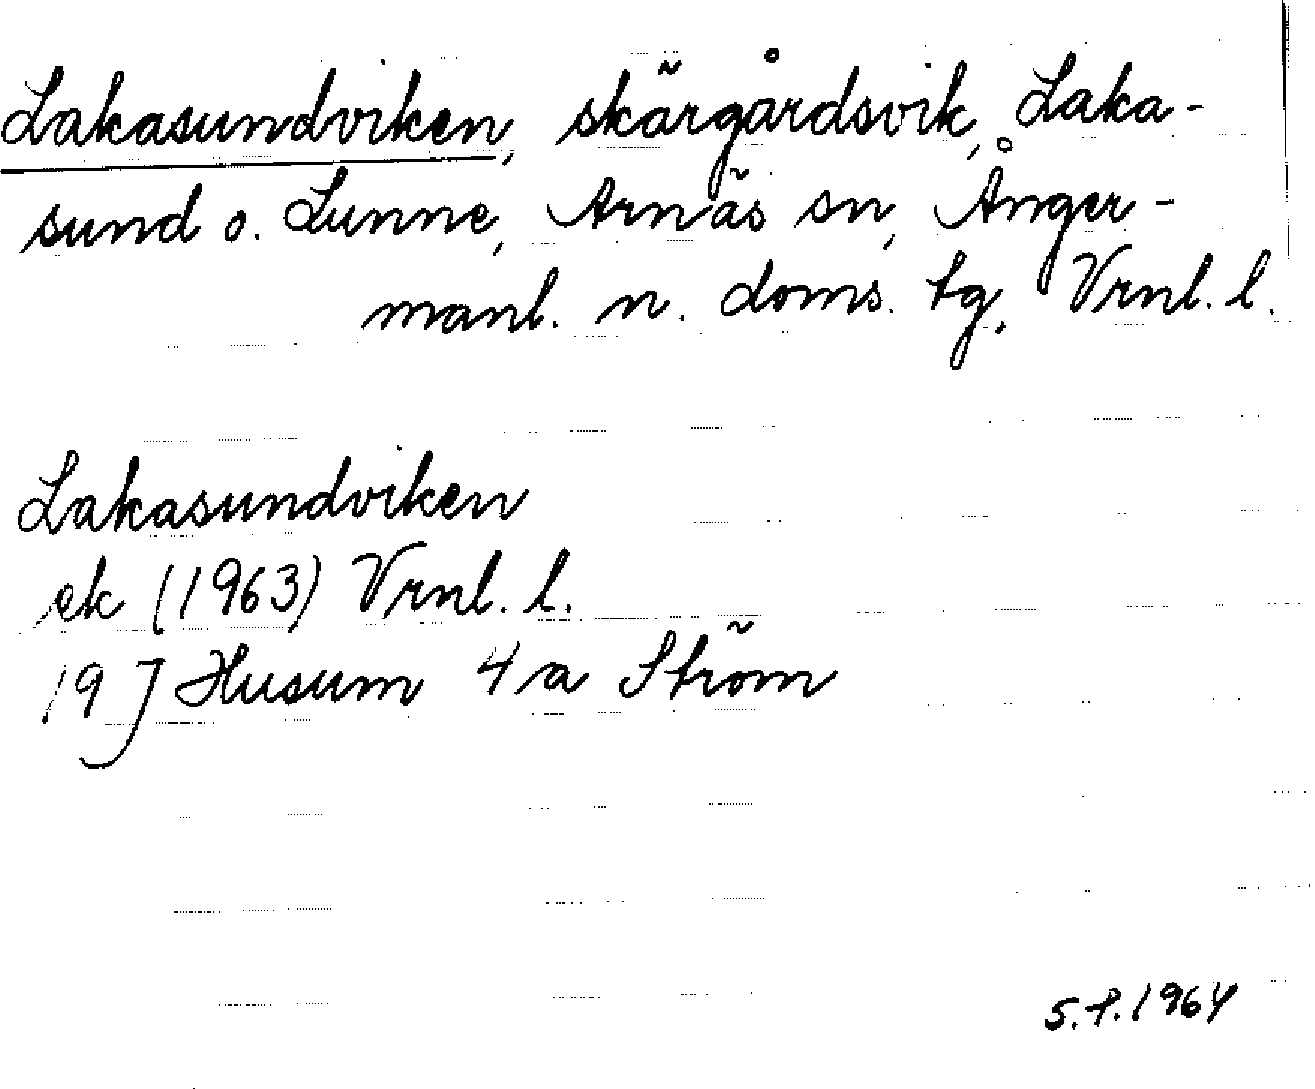 Lakasundviken, skärgårdsvik, Laka-
sund o. Sunne, Arnäs sn, Ånger-
manl. n. doms. tg, Vrnl. l.
Lakasundviken
ek (1963) Vrnl. l.
19 J Husum 4 a Ström
S.P. 1964